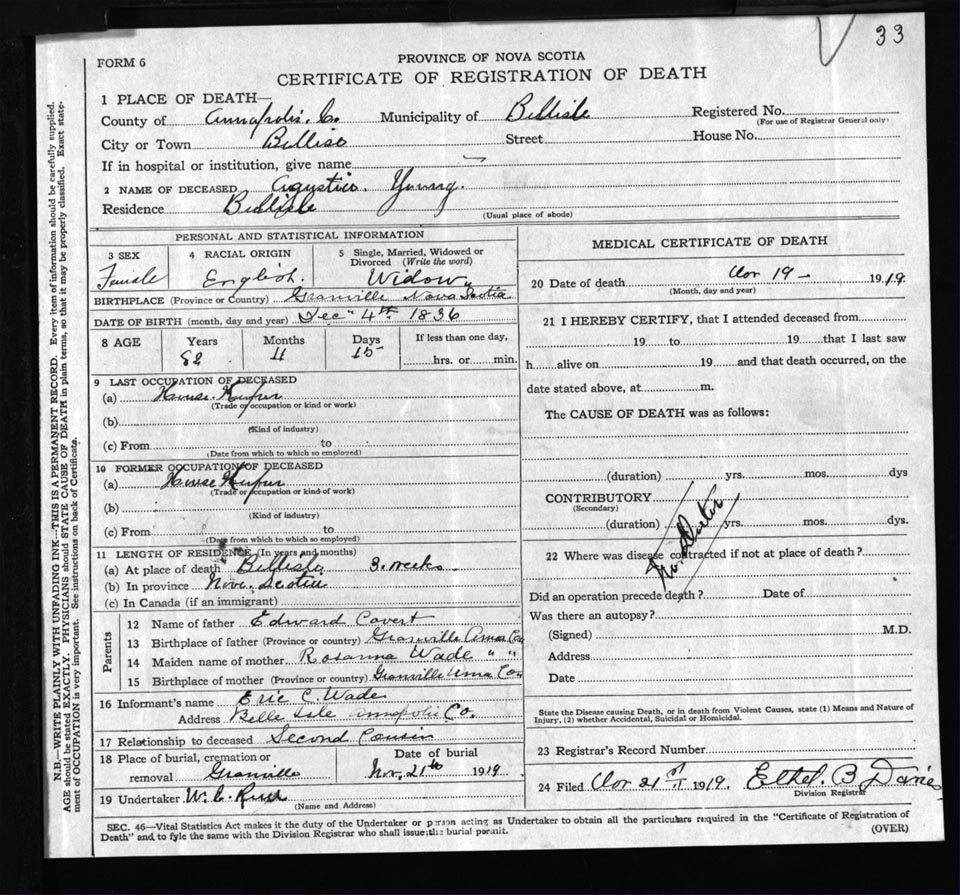 33
FORM 6
PROVINCE OF NOVA SCOTIA
CERTIFICATE OF REGISTRATION OF DEATH
1 PLACE OF DEATH—
County of Annapolis. Co. Municipality of Bellisle Registered No.
(For use of Registrar General only)
City or Town Street House No.
If in hospital or institution, give name
2 NAME OF DECEASED Young.
Residence Bellisle
(Usual place of abode)
PERSONAL AND STATISTICAL INFORMATION
3 SEX Female
4 RACIAL ORIGIN English.
5 Single, Married, Widowed or Divorced (Write the word) Widow
BIRTHPLACE (Province or Country) Granville Nova Scotia
DATE OF BIRTH (month, day and year) Dec 4th 1836
8 AGE Years Months Days If less than one day,
82 11 15 hrs. or min.
9 LAST OCCUPATION OF DECEASED
(a) House Keeper
(Trade or occupation or kind or work)
(b)
(Kind of industry)
(c) From to
(Date from which to which so employed)
10 FORMER OCCUPATION OF DECEASED
(a) House Keeper
(Trade or occupation or kind of work)
(b)
(Kind of industry)
(c) From to
(Date from which to which so employed)
11 LENGTH OF RESIDENCE (In years and months)
(a) At place of death 3. weeks
(b) In province Nova Scotia
(c) In Canada (if an immigrant)
Parents
12 Name of father Edward Covert
13 Birthplace of father (Province or country) Granville Anna Co
14 Maiden name of mother Rosanna Wade " "
15 Birthplace of mother (Province or country) Granville Anna Co
16 Informant's name Eric C. Wade
Address Belle Isle Annapolis Co.
17 Relationship to deceased Second Cousin
18 Place of burial, cremation or removal Granville Date of burial Nov. 21st 1919
19 Undertaker W. C.
(Name and Address)
MEDICAL CERTIFICATE OF DEATH
20 Date of death Nov 19 - 1919
(Month, day and year)
21 I HEREBY CERTIFY, that I attended deceased from
19 to 19 that I last saw
h alive on 19 and that death occurred, on the
date stated above, at m.
The CAUSE OF DEATH was as follows:
(duration) yrs. mos. dys
CONTRIBUTORY
(Secondary)
(duration) yrs. mos. dys.
No Doctor
22 Where was disease contracted if not at place of death?
Did an operation precede death? Date of
Was there an autopsy?
(Signed) M.D.
Address
Date
State the Disease causing Death, or in death from Violent Causes, state (1) Means and Nature of
Injury, (2) whether Accidental, Suicidal or Homicidal.
23 Registrar's Record Number
24 Filed Nov 21st 1919. Ethel. B Davies
Division Registrar
SEC. 46—Vital Statistics Act makes it the duty of the Undertaker or person acting as Undertaker to obtain all the particulars required in the "Certificate of Registration of
Death" and to fyle the same with the Division Registrar who shall issue the burial permit.
(OVER)
N.B.—WRITE PLAINLY WITH UNFADING INK—THIS IS A PERMANENT RECORD. Every item of information should be carefully supplied.
AGE should be stated EXACTLY. PHYSICIANS should STATE CAUSE OF DEATH in plain terms, so that it may be properly classified. Exact state-
ment of OCCUPATION is very important. See instructions on back of Certificate.